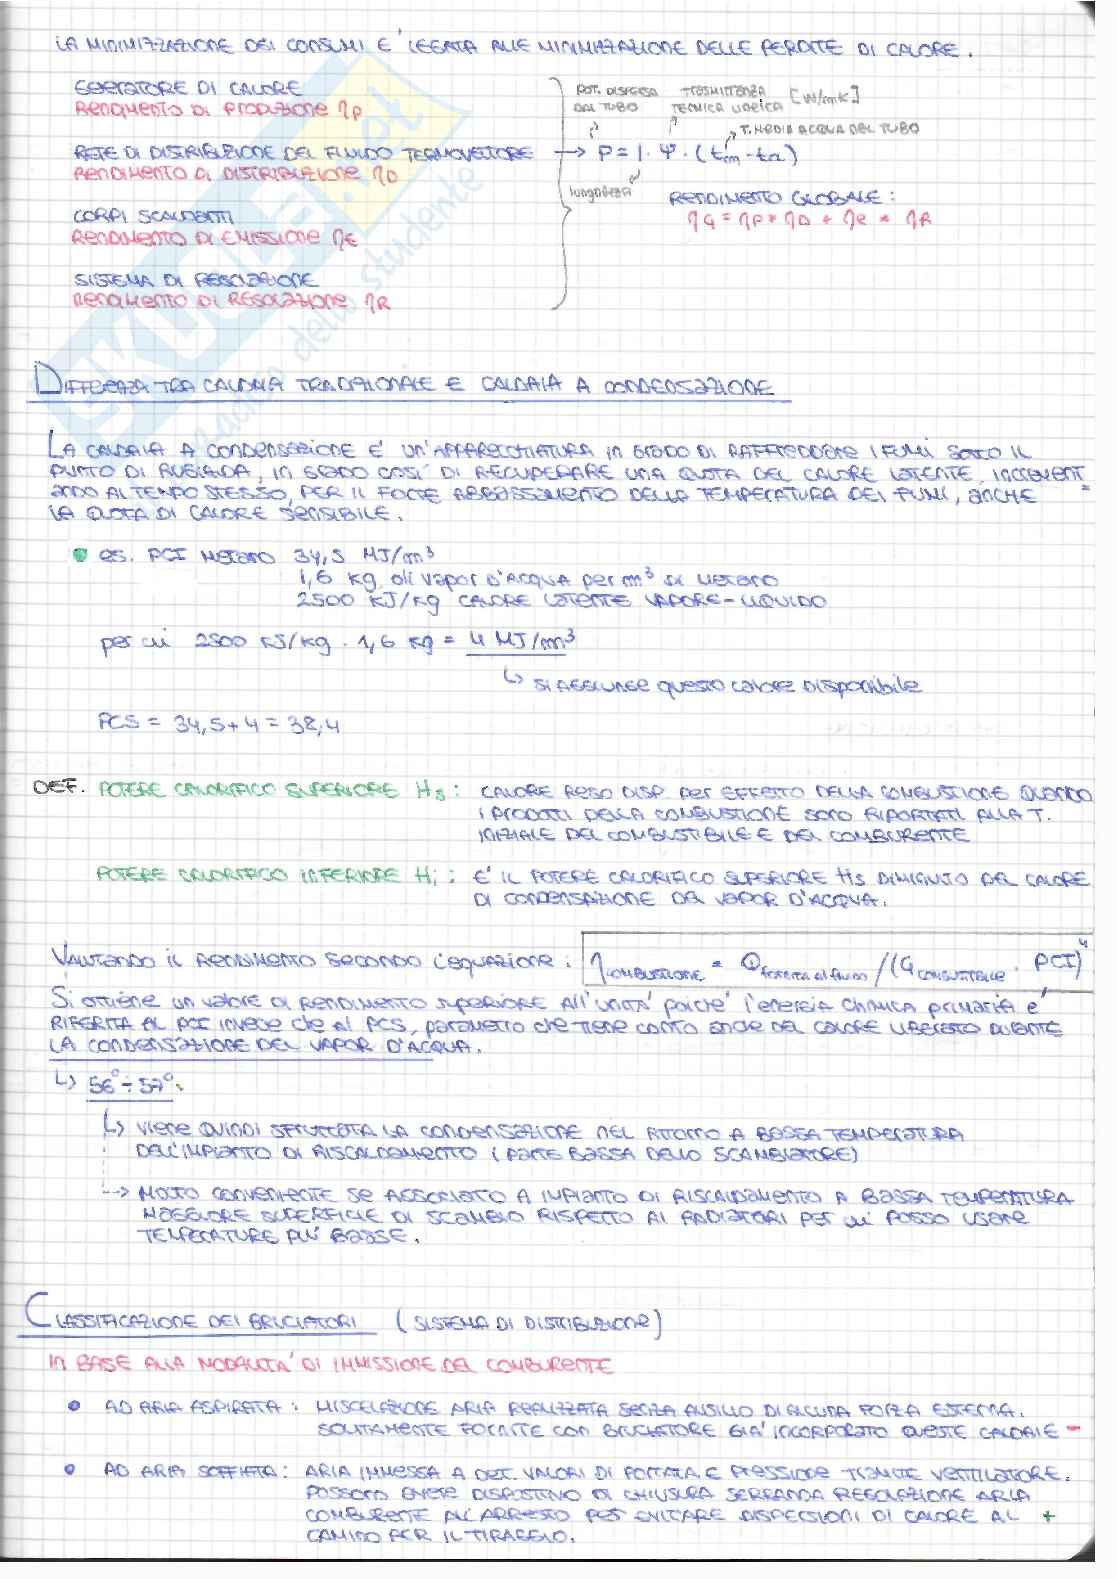 LA MINIMIZZAZIONE DEI CONSUMI E' LEGATA ALLE MINIMIZZAZIONE DELLE PERDITE DI CALORE.
GENERATORE DI CALORE
RENDIMENTO DI PRODUZIONE ηP
RETE DI DISTRIBUZIONE DEL FLUIDO TERMOVETTORE
RENDIMENTO DI DISTRIBUZIONE ηD
CORPI SCALDANTI
RENDIMENTO DI EMISSIONE ηE
SISTEMA DI REGOLAZIONE
RENDIMENTO DI REGOLAZIONE ηR
POT. DISPERSA DAL TUBO
TRASMITTANZA TERMICA LINEICA [W/mK]
T. MEDIA ACQUA DEL TUBO
→ P = l · ψ · (tm - ta)
lunghezza
RENDIMENTO GLOBALE:
ηG = ηP * ηD * ηE * ηR
SKUOLA.net
paradiso dello studente
DIFFERENZA TRA CALDAIA TRADIZIONALE E CALDAIA A CONDENSAZIONE
LA CALDAIA A CONDENSAZIONE E' UN'APPARECCHIATURA IN GRADO DI RAFFREDDARE I FUMI SOTTO IL
PUNTO DI RUGIADA, IN GRADO COSI' DI RECUPERARE UNA QUOTA DEL CALORE LATENTE, INCREMENT=
ANDO AL TEMPO STESSO, PER IL FORTE ABBASSAMENTO DELLA TEMPERATURA DEI FUMI, ANCHE
LA QUOTA DI CALORE SENSIBILE.
• es. PCI METANO 34,5 MJ/m³
1,6 kg di vapor D'ACQUA per m³ di METANO
2500 KJ/kg CALORE LATENTE VAPORE-LIQUIDO
per cui 2500 KJ/kg · 1,6 kg = 4 MJ/m³
↳ SI AGGIUNGE questo calore Disponibile
PCS = 34,5 + 4 = 38,4
DEF. POTERE CALORIFICO SUPERIORE Hs: CALORE RESO DISP. per EFFETTO DELLA COMBUSTIONE QUANDO
I PRODOTTI DELLA COMBUSTIONE SONO RIPORTATI ALLA T.
INIZIALE DEL COMBUSTIBILE E DEL COMBURENTE
POTERE CALORIFICO INFERIORE Hi: E' IL POTERE CALORIFICO SUPERIORE Hs DIMINUITO DEL CALORE
DI CONDENSAZIONE DEL VAPOR D'ACQUA.
VALUTANDO IL RENDIMENTO SECONDO L'EQUAZIONE: ηCOMBUSTIONE = Qfornita al fluido / (GCOMBUSTIBILE · PCI)
Si ottiene un valore di RENDIMENTO superiore all'unità poiche' l'energia chimica primaria e'
RIFERITA AL PCI invece che al PCS, parametro che tiene conto anche DEL CALORE LIBERATO DURANTE
LA CONDENSAZIONE DEL VAPOR D'ACQUA.
↳ 56° ÷ 57°.
↳ VIENE QUINDI SFRUTTATA LA CONDENSAZIONE NEL RITORNO A BASSA TEMPERATURA
DELL'IMPIANTO DI RISCALDAMENTO (PARTE BASSA DELLO SCAMBIATORE)
--> MOLTO CONVENIENTE SE ASSOCIATO A IMPIANTO DI RISCALDAMENTO A BASSA TEMPERATURA
MAGGIORE SUPERFICIE DI SCAMBIO RISPETTO AI RADIATORI PER cui POSSO USARE
TEMPERATURE PIU' BASSE.
CLASSIFICAZIONE DEI BRUCIATORI (SISTEMA DI DISTRIBUZIONE)
IN BASE ALLA MODALITA' DI IMMISSIONE DEL COMBURENTE
• AD ARIA ASPIRATA: MISCELAZIONE ARIA REALIZZATA SENZA AUSILIO DI ALCUNA FORZA ESTERNA.
SOLITAMENTE FORNITE CON BRUCIATORE GIA' INCORPORATO QUESTE CALDAIE -
• AD ARIA SOFFIATA: ARIA IMMESSA A DET. VALORI DI PORTATA E PRESSIONE TRAMITE VENTILATORE.
POSSONO AVERE DISPOSITIVO DI CHIUSURA SERRANDA REGOLAZIONE ARIA
COMBURENTE ALL'ARRESTO PER EVITARE DISPERSIONI DI CALORE AL +
CAMINO PER IL TIRAGGIO.